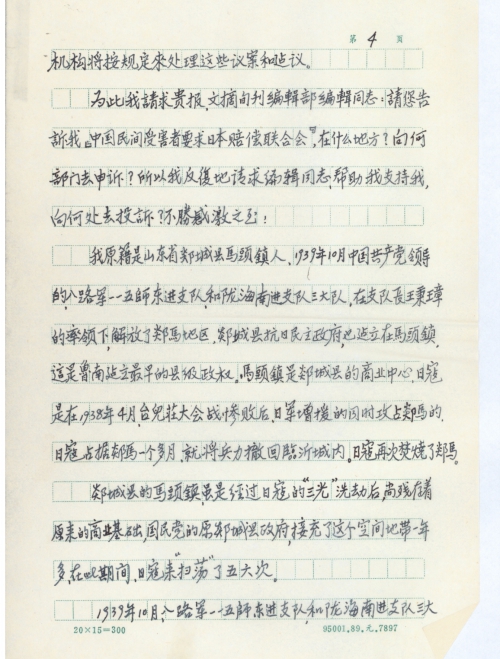 第 4 页
机构将按规定來处理这些议案和建议。
为此我請求贵报，文摘旬刊編輯部編輯同志：請您告
訴我，《中国民间受害者要求日本赔偿联合会》，在什么地方？向何
部门去申诉？所以我反復地请求编辑同志，帮助我支持我，
向何处去投訴？不勝感激之至：
我原籍是山东省郯城县馬頭鎮人、1939年10月中国共产党领导
的八路军一一五師东进支队，和陇海南进支队三大队，在支队長王秉璋
的率领下解放了郯馬地区，郯城县抗日民主政府也建立在馬頭鎮，
這是魯南建立最早的县级政权。馬頭鎮是郯城县的商业中心，日寇
是在1938年4月台兒莊大会战惨败后，日军增援的同时攻占郯馬的，
日寇占据郯馬一个多月，就将兵力撤回臨沂城内。日寇再次焚烧了郯馬。
郯城县的马頭鎮虽是经过日寇的“三光”洗劫后，尚残存着
原来的商业基础，国民党的原郯城县政府，接充了这个空间地带一年
多，在此期间，日寇来“扫荡”了五六次。
1939年10月，八路军一一五師东进支队，和陇海南进支队三大
20×15=300
95001.89.元.7897